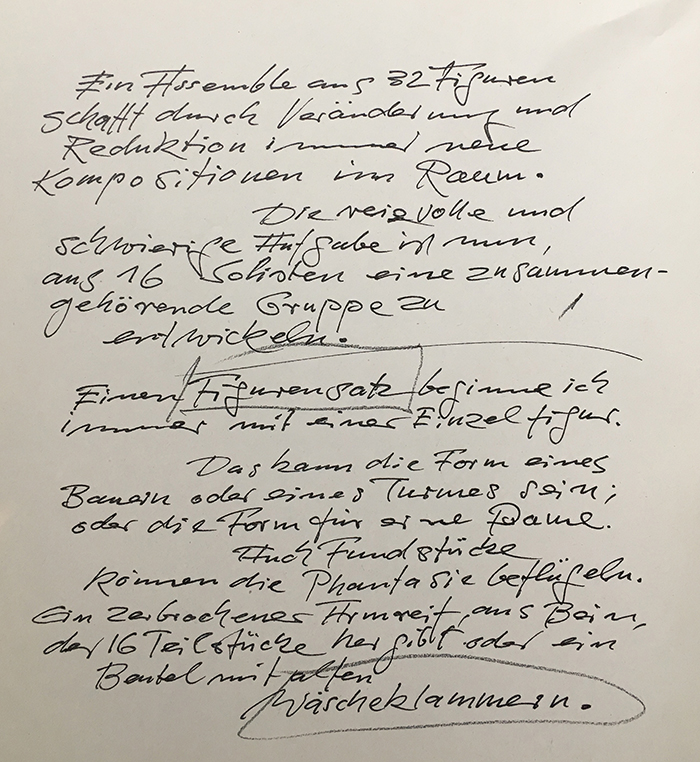 Ein Assemble aus 32 Figuren
schafft durch Veränderung und
Reduktion immer neue
Kompositionen im Raum.
Die reizvolle und
schwierige Aufgabe ist nun,
aus 16 Solisten eine zusammen-
gehörende Gruppe zu
entwickeln.
Einen Figurensatz beginne ich
immer mit einer Einzelfigur.
Das kann die Form eines
Bauern oder eines Turmes sein;
oder die Form für eine Dame.
Auch Fundstücke
können die Phantasie beflügeln.
Ein zerbrochener Armreif, aus Bein,
der 16 Teilstücke hergibt oder ein
Beutel mit alten
Wäscheklammern.